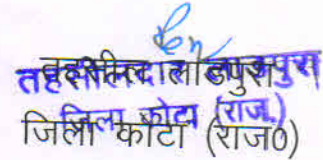 तहसीलदार लाडपुरा
जिला कोटा (राज.)
तहसील लाडपुरा
जिला कोटा (राज0)